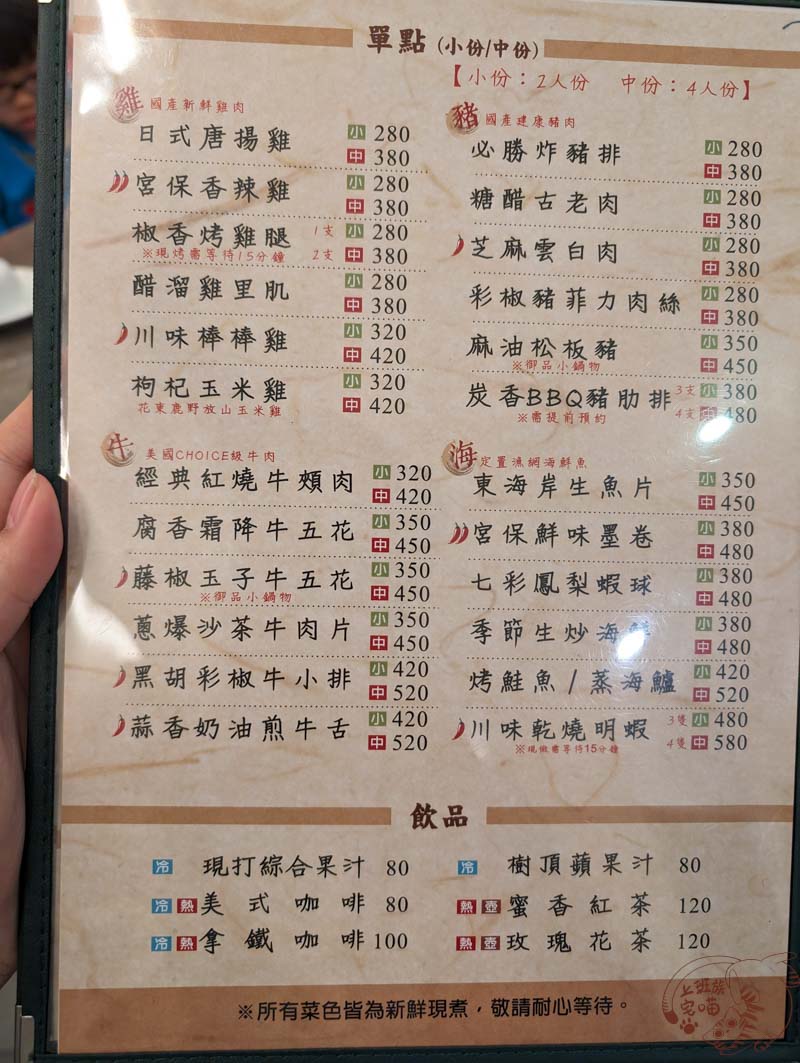 單點 (小份/中份)
【小份：2人份 中份：4人份】
雞 國產新鮮雞肉
日式唐揚雞 小 280
中 380
宮保香辣雞 小 280
中 380
椒香烤雞腿 1支 小 280
※現烤需等待15分鐘 2支 中 380
醋溜雞里肌 小 280
中 380
川味棒棒雞 小 320
中 420
枸杞玉米雞 小 320
花東鹿野放山玉米雞 中 420
豬 國產健康豬肉
必勝炸豬排 小 280
中 380
糖醋古老肉 小 280
中 380
芝麻雲白肉 小 280
中 380
彩椒豬菲力肉絲 小 280
中 380
麻油松板豬 小 350
※御品小鍋物 中 450
炭香BBQ豬肋排 3支 小 380
※需提前預約 4支 中 480
牛 美國CHOICE級牛肉
經典紅燒牛頰肉 小 320
中 420
腐香霜降牛五花 小 350
中 450
藤椒玉子牛五花 小 350
※御品小鍋物 中 450
蔥爆沙茶牛肉片 小 350
中 450
黑胡彩椒牛小排 小 420
中 520
蒜香奶油煎牛舌 小 420
中 520
海 定置漁網海鮮魚
東海岸生魚片 小 350
中 450
宮保鮮味墨卷 小 380
中 480
七彩鳳梨蝦球 小 380
中 480
季節生炒海鮮 小 380
中 480
烤鮭魚/蒸海鱸 小 420
中 520
川味乾燒明蝦 3隻 小 480
※現做需等待15分鐘 4隻 中 580
飲品
冷 現打綜合果汁 80
冷 熱 美式咖啡 80
冷 熱 拿鐵咖啡 100
冷 樹頂蘋果汁 80
熱 壺 蜜香紅茶 120
熱 壺 玫瑰花茶 120
※所有菜色皆為新鮮現煮，敬請耐心等待。
上班族
宅喵